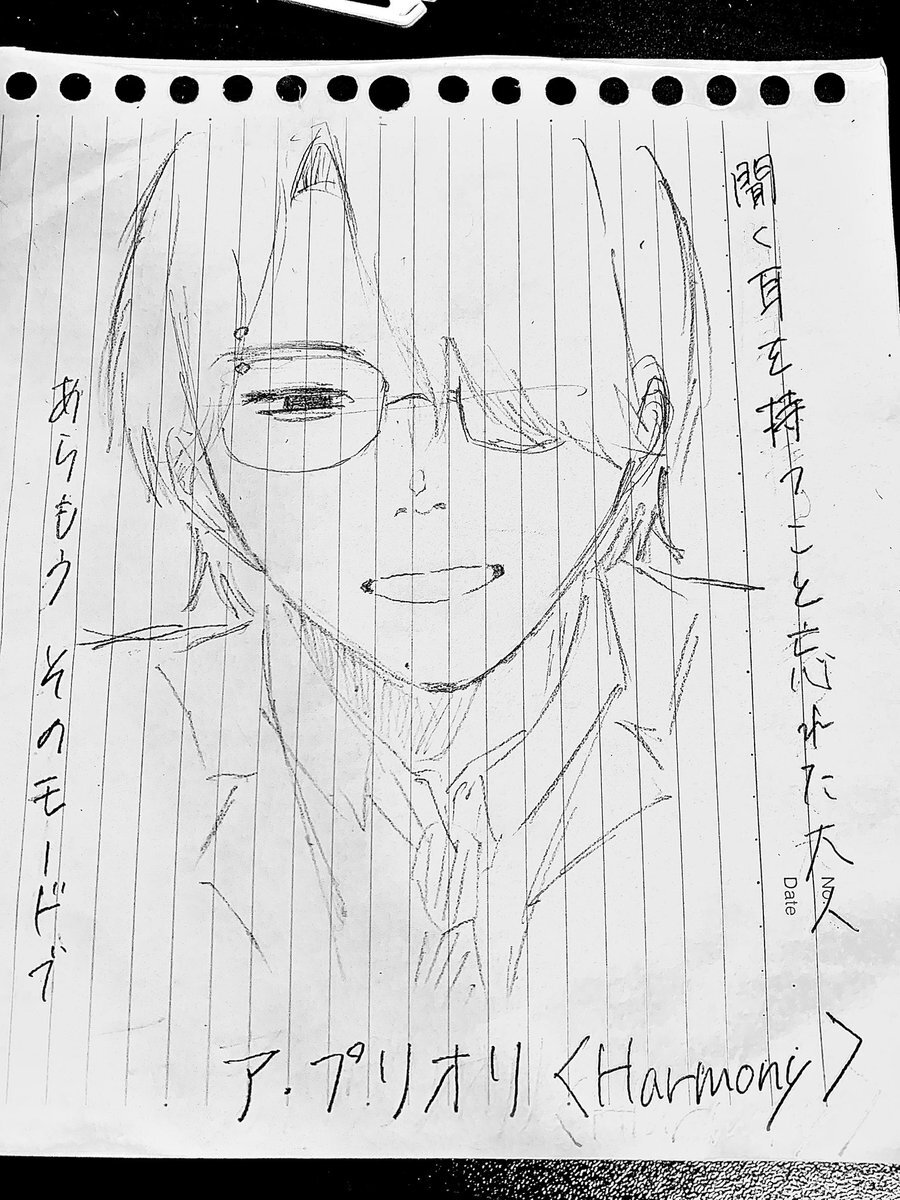 聞く耳を持つこと忘れた大人
あらもう そのモードで
ア・プリオリ〈Harmony〉
No.
Date